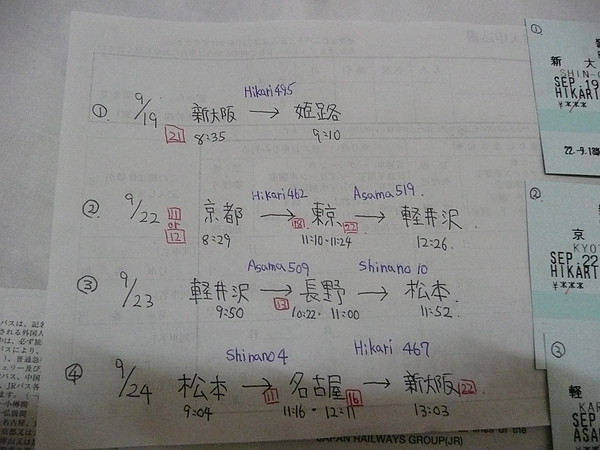 ① 9/19 新大阪 → 姫路
Hikari 495
21 8:35 9:10
② 9/22 11 or 12 京都 → 東京 → 軽井沢
Hikari 462 Asama 519.
8:29 18 11:10・11:24 22 12:26.
③ 9/23 軽井沢 → 長野 → 松本.
Asama 509 Shinano 10
9:50 13 10:22・11:00 11:52.
④ 9/24 松本 → 名古屋 → 新大阪
Shinano 4 Hikari 467
9:04 11 11:16・12:11 16 13:03 22
①
新 大
SHIN-O
SEP. 19
HIKARI
¥***
22.-9.1
②
京
KYO
SEP. 22
HIKARI
¥***
③
軽
KAR
SEP
ASA
JAPAN RAILWAYS GROUP(JR)